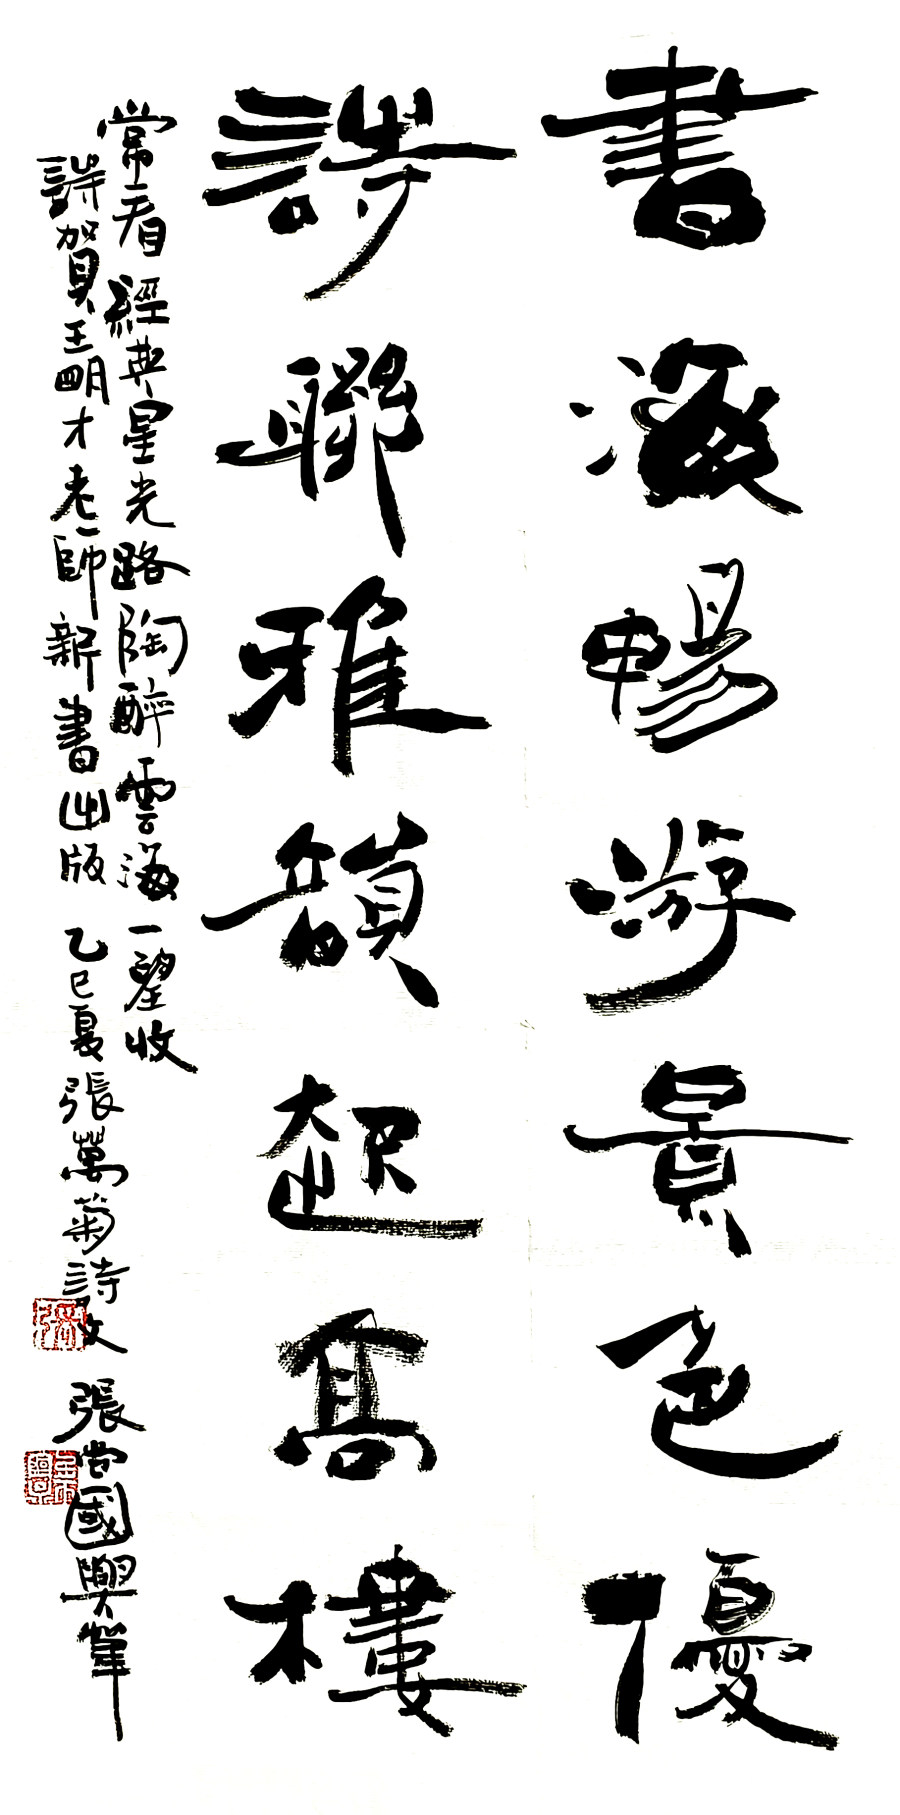 書海暢游景色優
詩聯雅韻起高樓
常看經典星光路陶醉雲海一望收
詩賀王明才老師新書出版 乙巳夏 張萬菊詩文 張尚國興筆